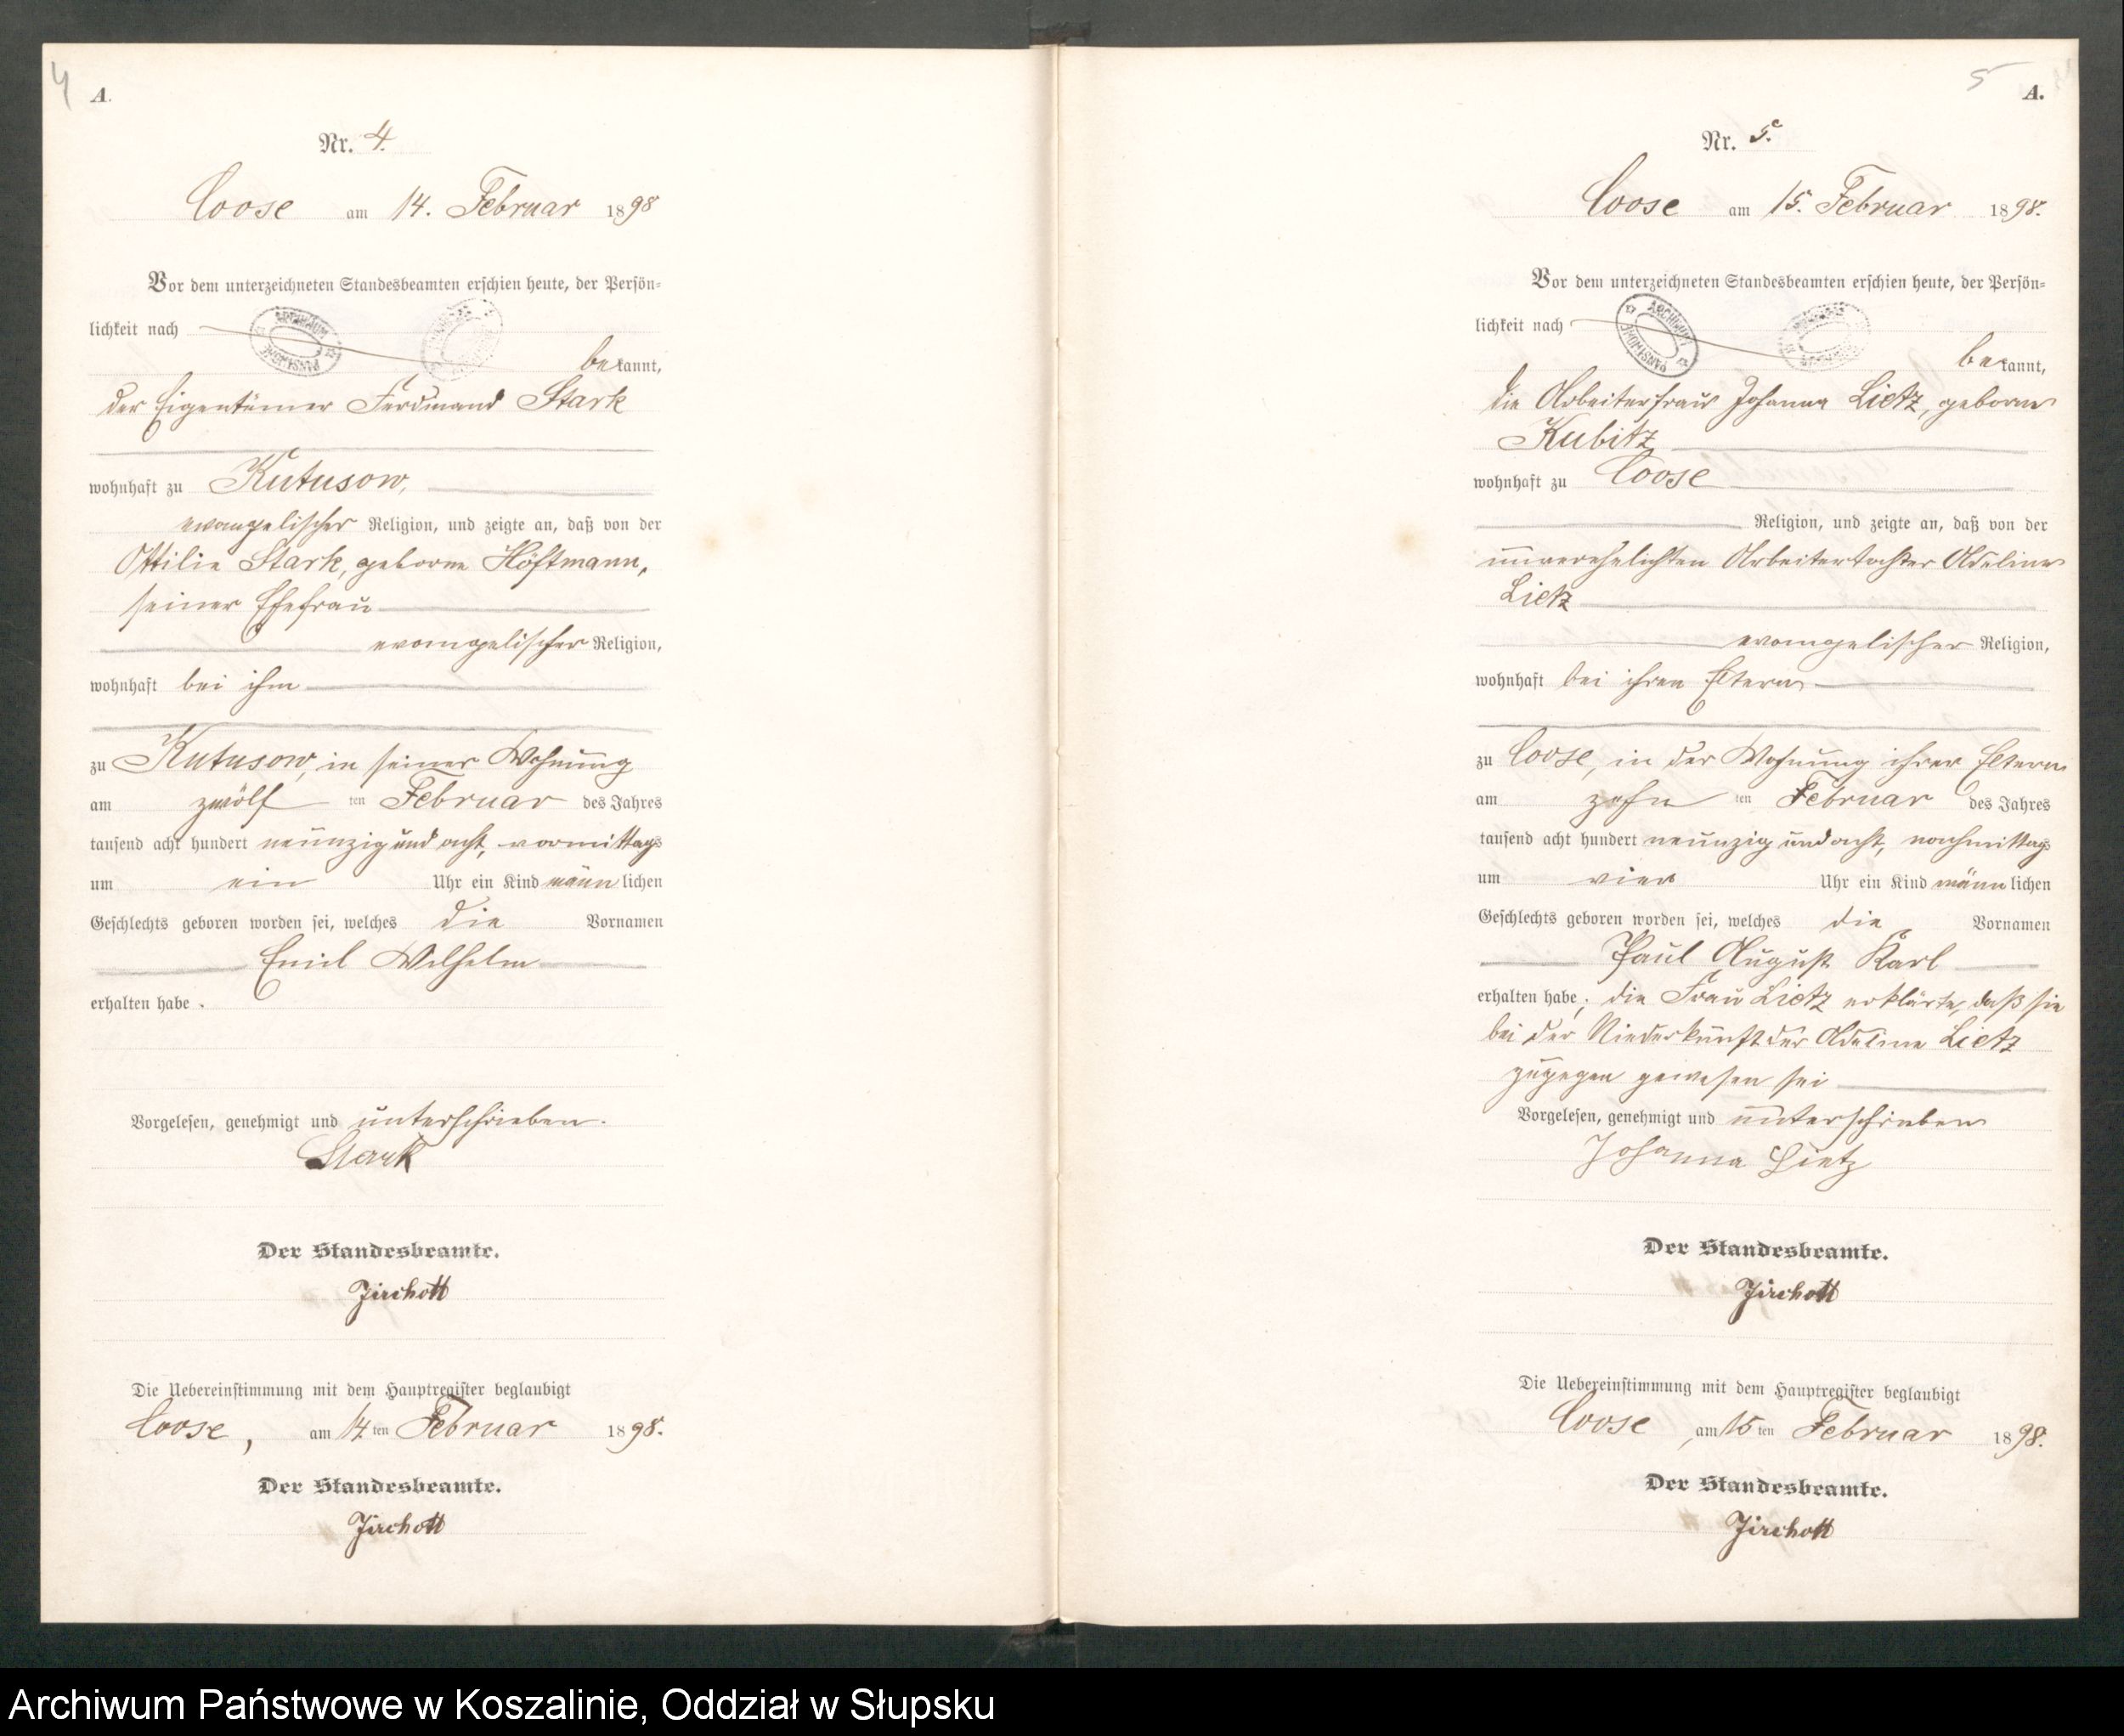 4
A.
Nr. 4.
Coose am 14. Februar 1898
Vor dem unterzeichneten Standesbeamten erschien heute, der Persön=
lichkeit nach
bekannt,
der Eigentümer Ferdinand Stark
wohnhaft zu Kutusow,
evangelischer Religion, und zeigte an, daß von der
Ottilie Stark, geborne Höftmann,
seiner Ehefrau
evangelischer Religion,
wohnhaft bei ihm
zu Kutusow, in seiner Wohnung
am zwölf ten Februar des Jahres
tausend acht hundert neunzig und acht, vormittags
um ein Uhr ein Kind männlichen
Geschlechts geboren worden sei, welches die Vornamen
Emil Wilhelm
erhalten habe.
Vorgelesen, genehmigt und unterschrieben.
Stark
Der Standesbeamte.
Jirchott
Die Uebereinstimmung mit dem Hauptregister beglaubigt
Coose, am 14ten Februar 1898.
Der Standesbeamte.
Jirchott
5
A.
Nr. 5.
Coose am 15. Februar 1898.
Vor dem unterzeichneten Standesbeamten erschien heute, der Persön=
lichkeit nach
bekannt,
die Arbeiterfrau Johanna Lietz, geborne
Kubitz
wohnhaft zu Coose
Religion, und zeigte an, daß von der
unverehelichten Arbeitertochter Adeline
Lietz
evangelischer Religion,
wohnhaft bei ihren Eltern
zu Coose, in der Wohnung ihrer Eltern
am zehn ten Februar des Jahres
tausend acht hundert neunzig und acht, nachmittags
um vier Uhr ein Kind männlichen
Geschlechts geboren worden sei, welches die Vornamen
Paul August Karl
erhalten habe; die Frau Lietz erklärte, daß sie
bei der Niederkunft der Adeline Lietz
zugegen gewesen sei
Vorgelesen, genehmigt und unterschrieben
Johanna Lietz
Der Standesbeamte.
Jirchott
Die Uebereinstimmung mit dem Hauptregister beglaubigt
Coose, am 15ten Februar 1898.
Der Standesbeamte.
Jirchott
Archiwum Państwowe w Koszalinie, Oddział w Słupsku